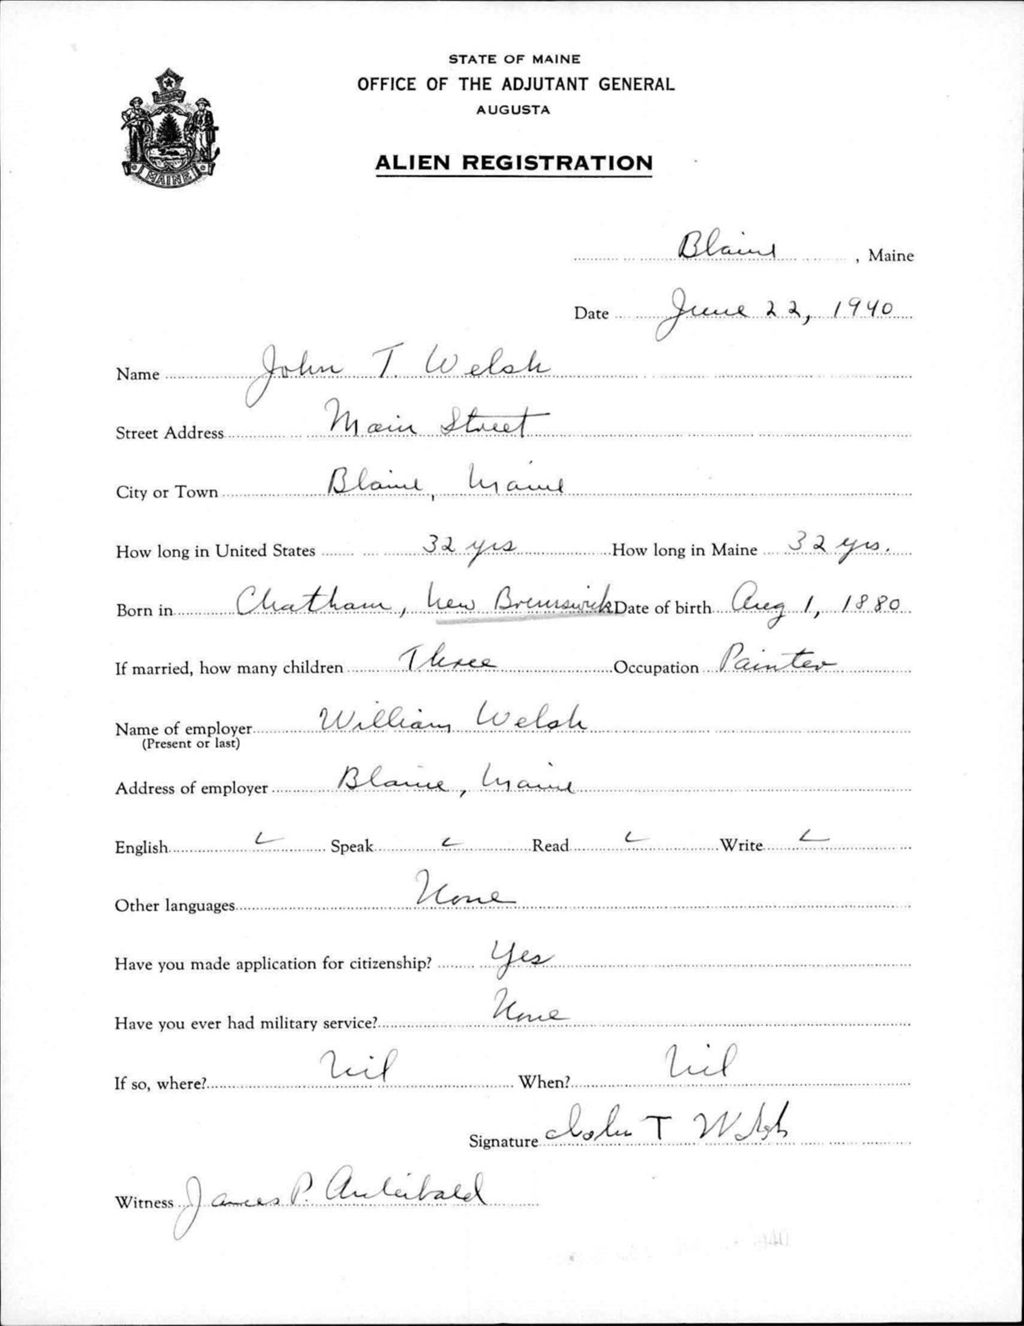 STATE OF MAINE
OFFICE OF THE ADJUTANT GENERAL
AUGUSTA
ALIEN REGISTRATION
MAINE
Blaine, Maine
Date June 22, 1940
Name John T. Welsh
Street Address Main Street
City or Town Blaine, Maine
How long in United States 32 yrs How long in Maine 32 yrs.
Born in Chatham, New Brunswick Date of birth Aug 1, 1880
If married, how many children Three Occupation Painter
Name of employer William Welsh
(Present or last)
Address of employer Blaine, Maine
English ✓ Speak ✓ Read ✓ Write ✓
Other languages None
Have you made application for citizenship? Yes
Have you ever had military service? None
If so, where? Nil When? Nil
Signature John T Welsh
Witness James P. Archibald